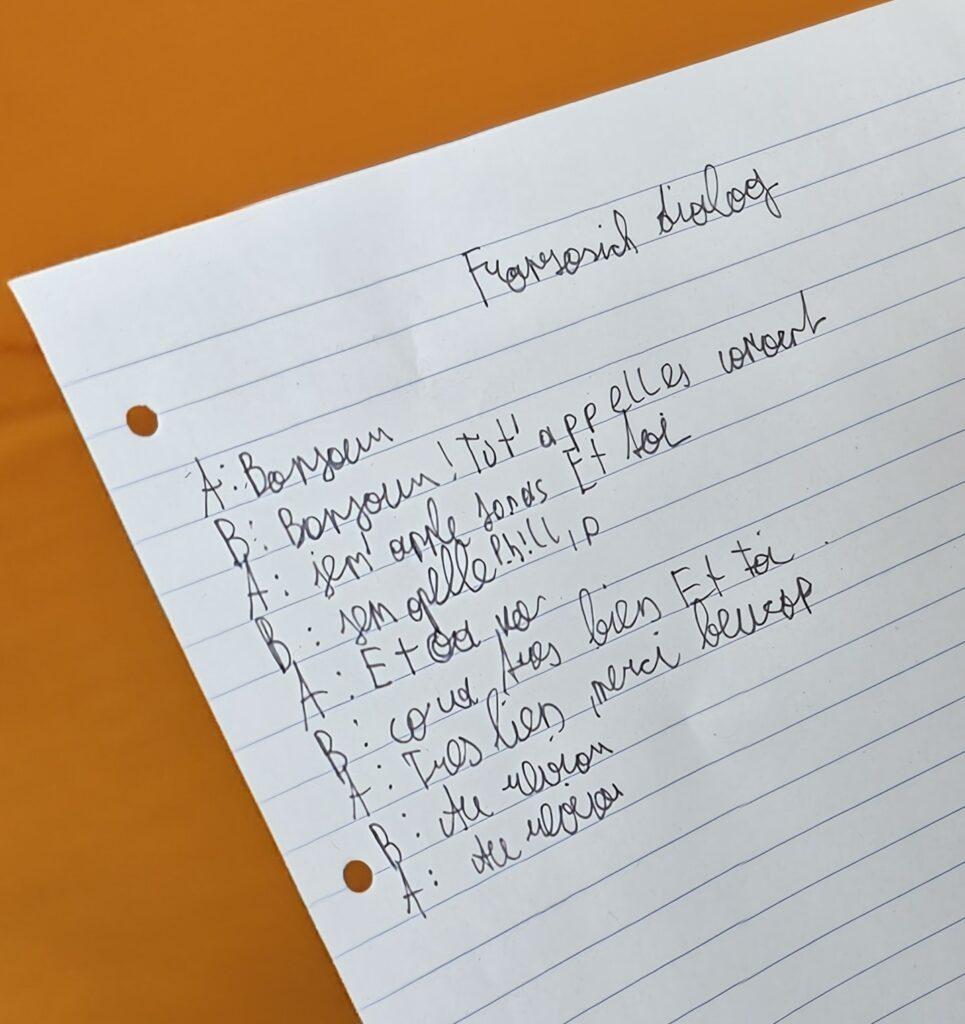 Franzosich dialog
A: Bonjour
B: Bonjour! Tu t' appelles coment
A: jem' apple Jonas Et toi
B: jem apelle Phillip
A: Et va
B: ca va tres bien Et toi
A: Tres bien, merci beucop
B: Au revoion
A: Au revoiar